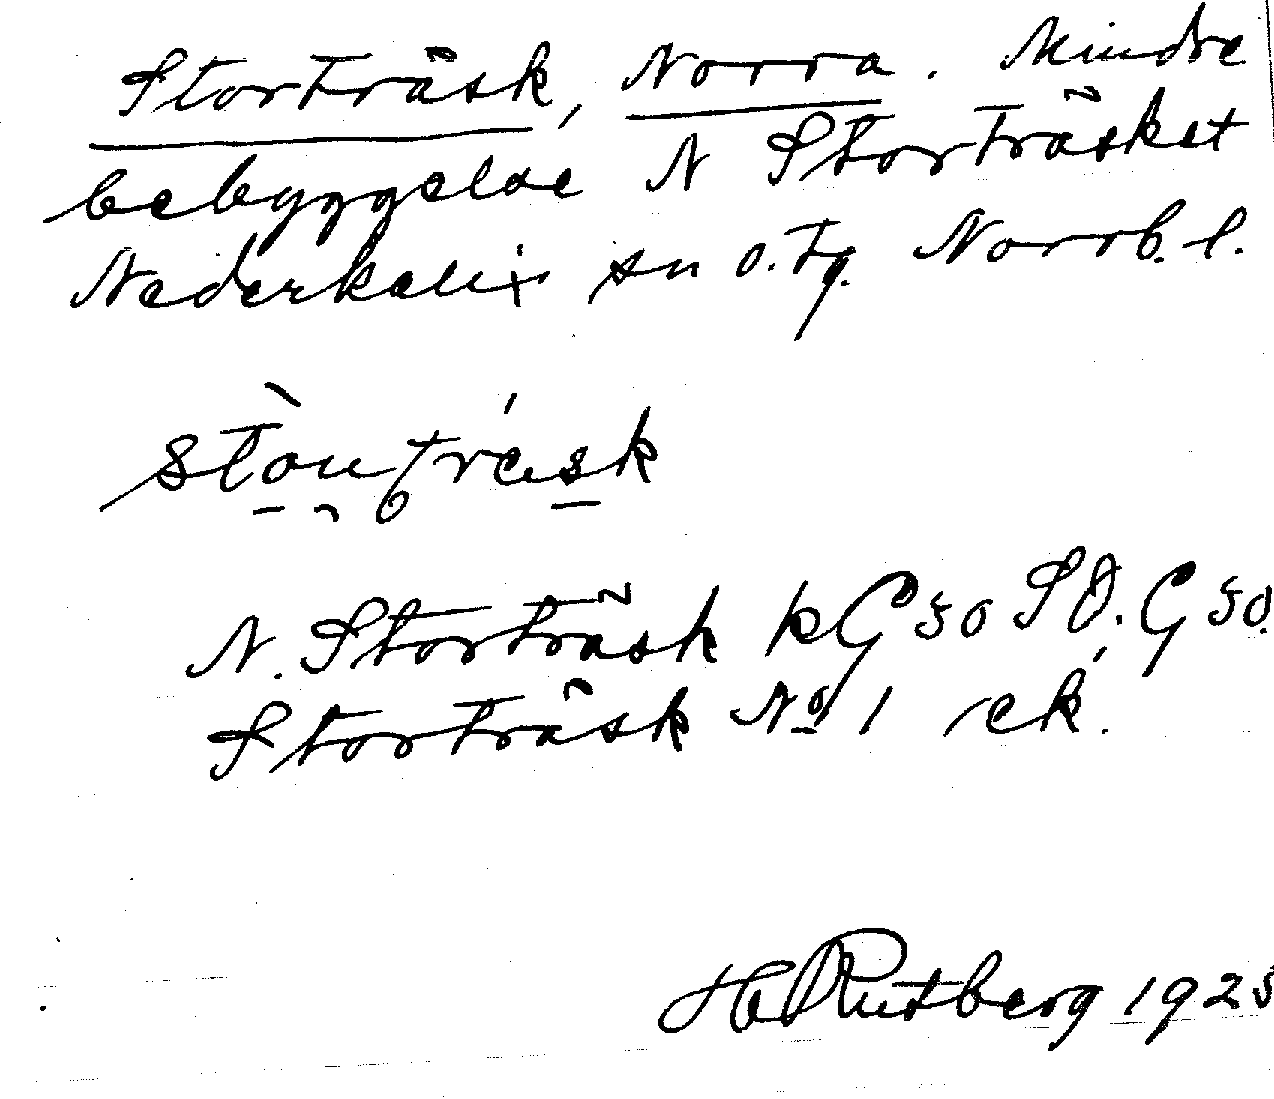 Storträsk, Norra. Mindre
bebyggelse N Storträsket
Nederkalix sn o. tg. Norrb. l.
N. Storträsk kG 50 SO. G 50.
Storträsk No 1 ek.
H Rutberg 1925